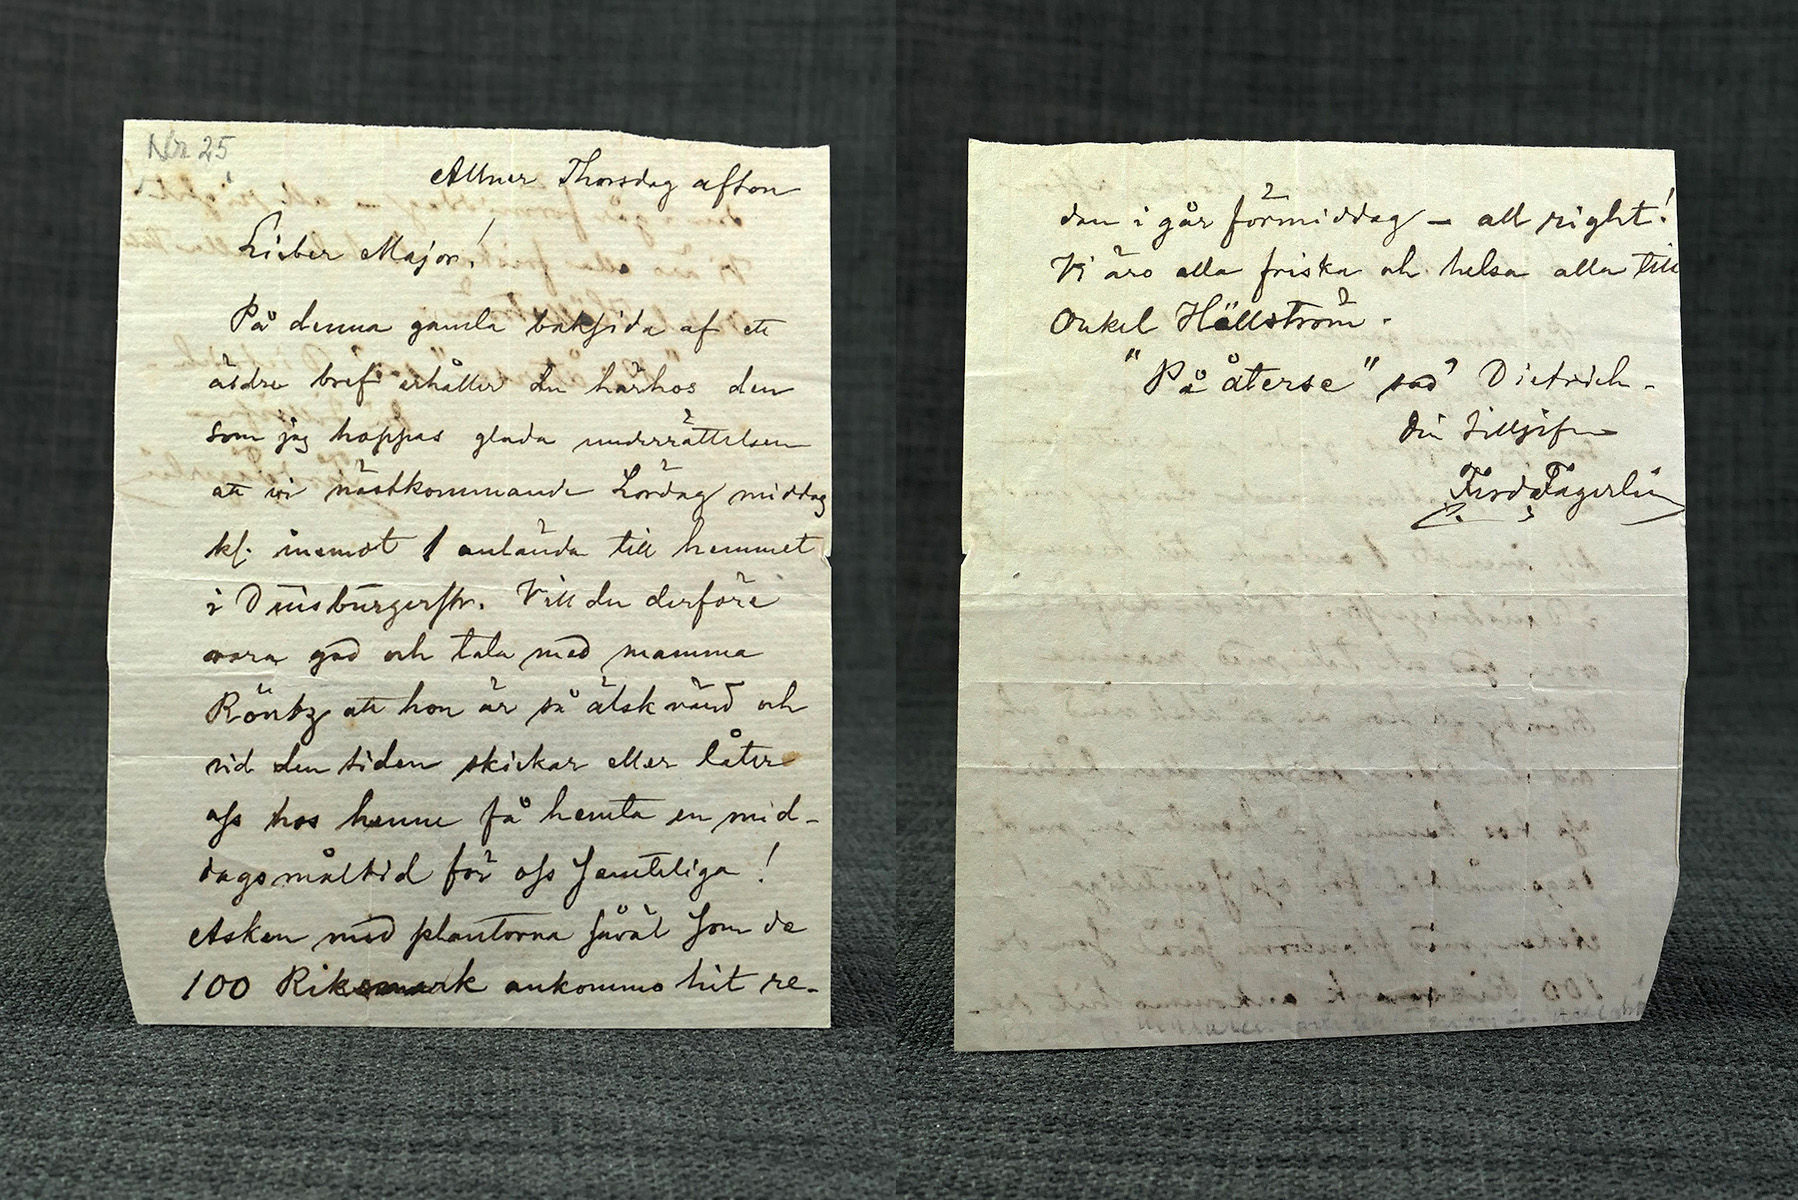 Nr 25
Allner Thorsdag afton
Lieber Major!
På denna gamla baksida af ett
äldre bref erhåller du härhos den
som jag hoppas glada underrättelsen
att vi nästkommande Lördag middag
kl. inemot 1 anlända till hemmet
i Duisburgerstr. Vill du derföre
vara god och tala med mamma
Röntz att hon är så älskvärd och
vid den tiden skickar eller låter
oss hos henne få hemta en mid-
dagsmåltid för oss samteliga!
Asken med plantorna såväl som de
100 Riksmark ankommo hit re-
dan i går förmiddag – all right!
Vi äro alla friska och helsa alla till
Onkel Hällström.
"På återse" sad' Dietrich.
Din tillgifne
Ferd Fagerlin